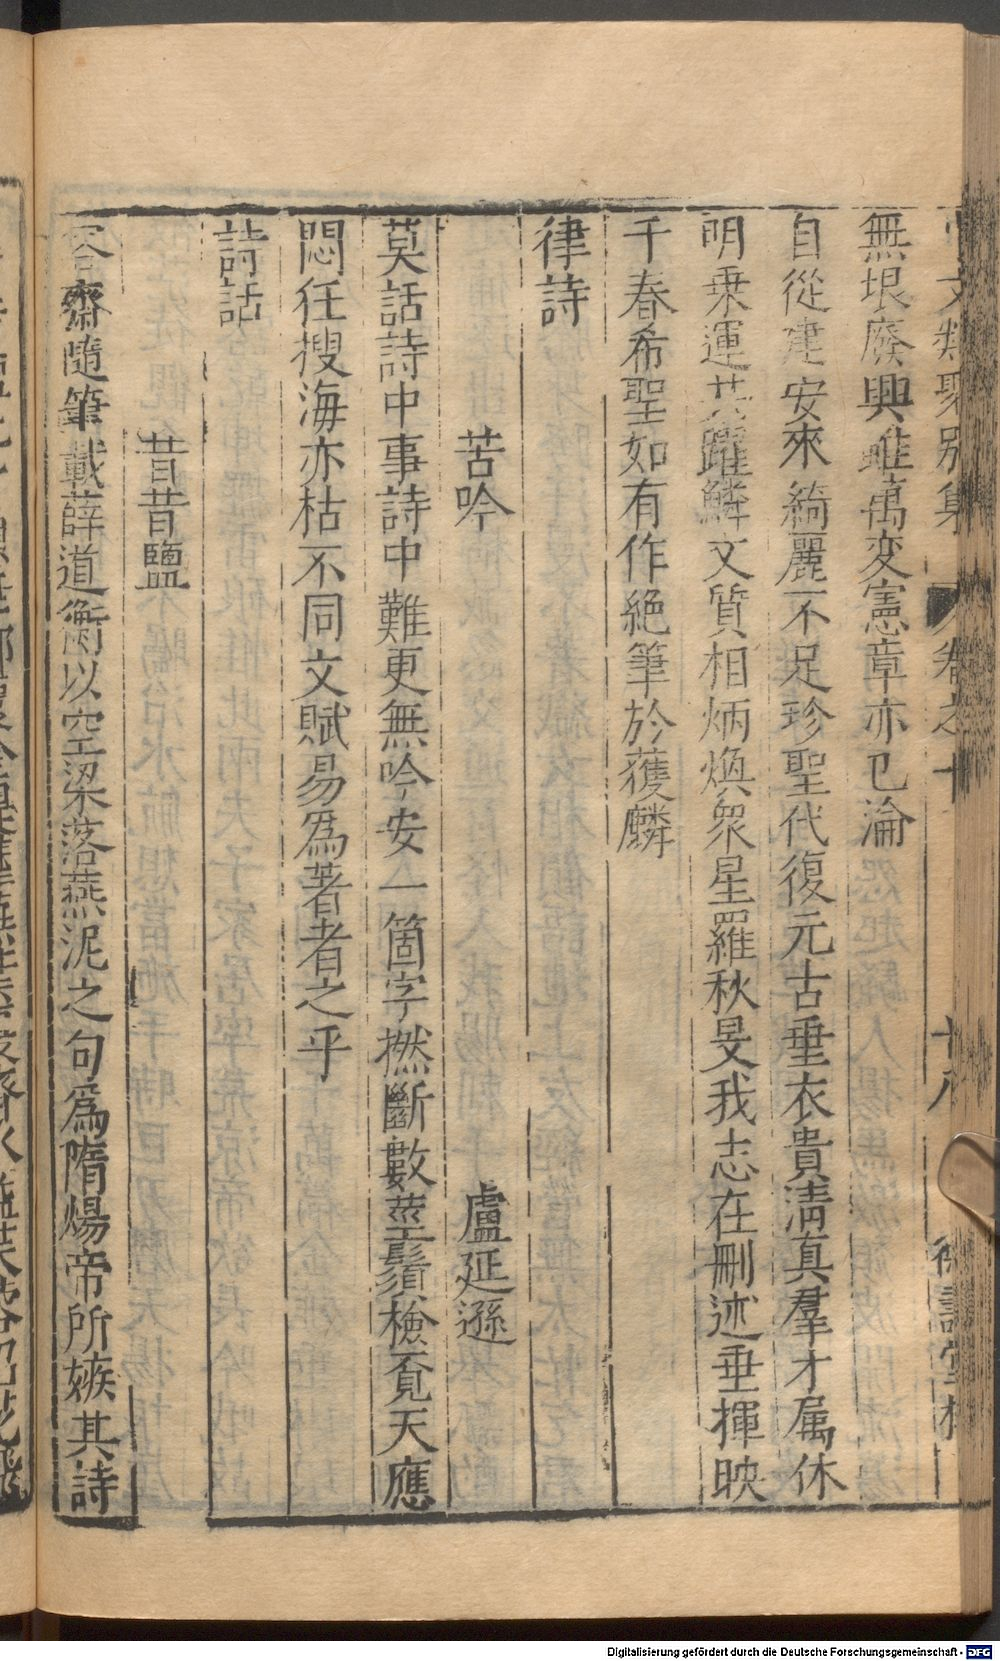 文類聚別集 卷之十 十八
無垠廢興雖萬変憲章亦已淪
自從建安來綺麗不足珍聖代復元古垂衣貴清真羣才属休
明乗運共躍鱗文質相炳煥衆星羅秋旻我志在刪述垂揮映
千春希聖如有作絶筆於獲麟
律詩
苦吟 盧延遜
莫話詩中事詩中難更無吟安一箇字撚斷數莖鬚檢覔天應
悶任搜海亦枯不同文賦易爲著者之乎
詩話
昔昔鹽
容齋隨筆載薛道衡以空梁落燕泥之句爲隋煬帝所嫉其詩
Digitalisierung gefördert durch die Deutsche Forschungsgemeinschaft - DFG